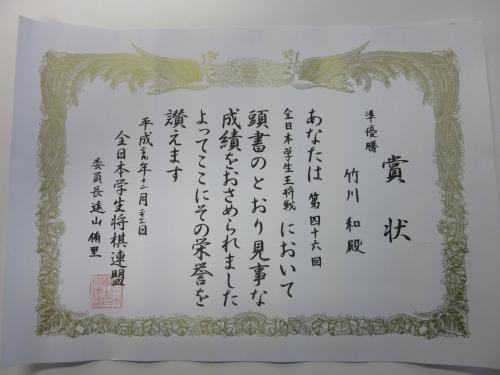 賞状
準優勝
竹川 和殿
あなたは 第四十六回
全日本学生王将戦 において
頭書のとおり見事な
成績をおさめられました
よってここにその栄誉を
讃えます
平成二十九年十二月二十三日
全日本学生将棋連盟
委員長 遠山 侑里